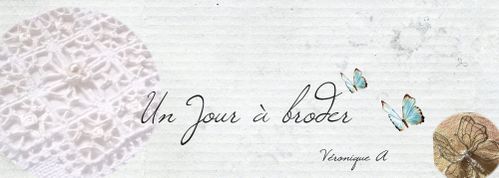 Un Jour à broder
Véronique A